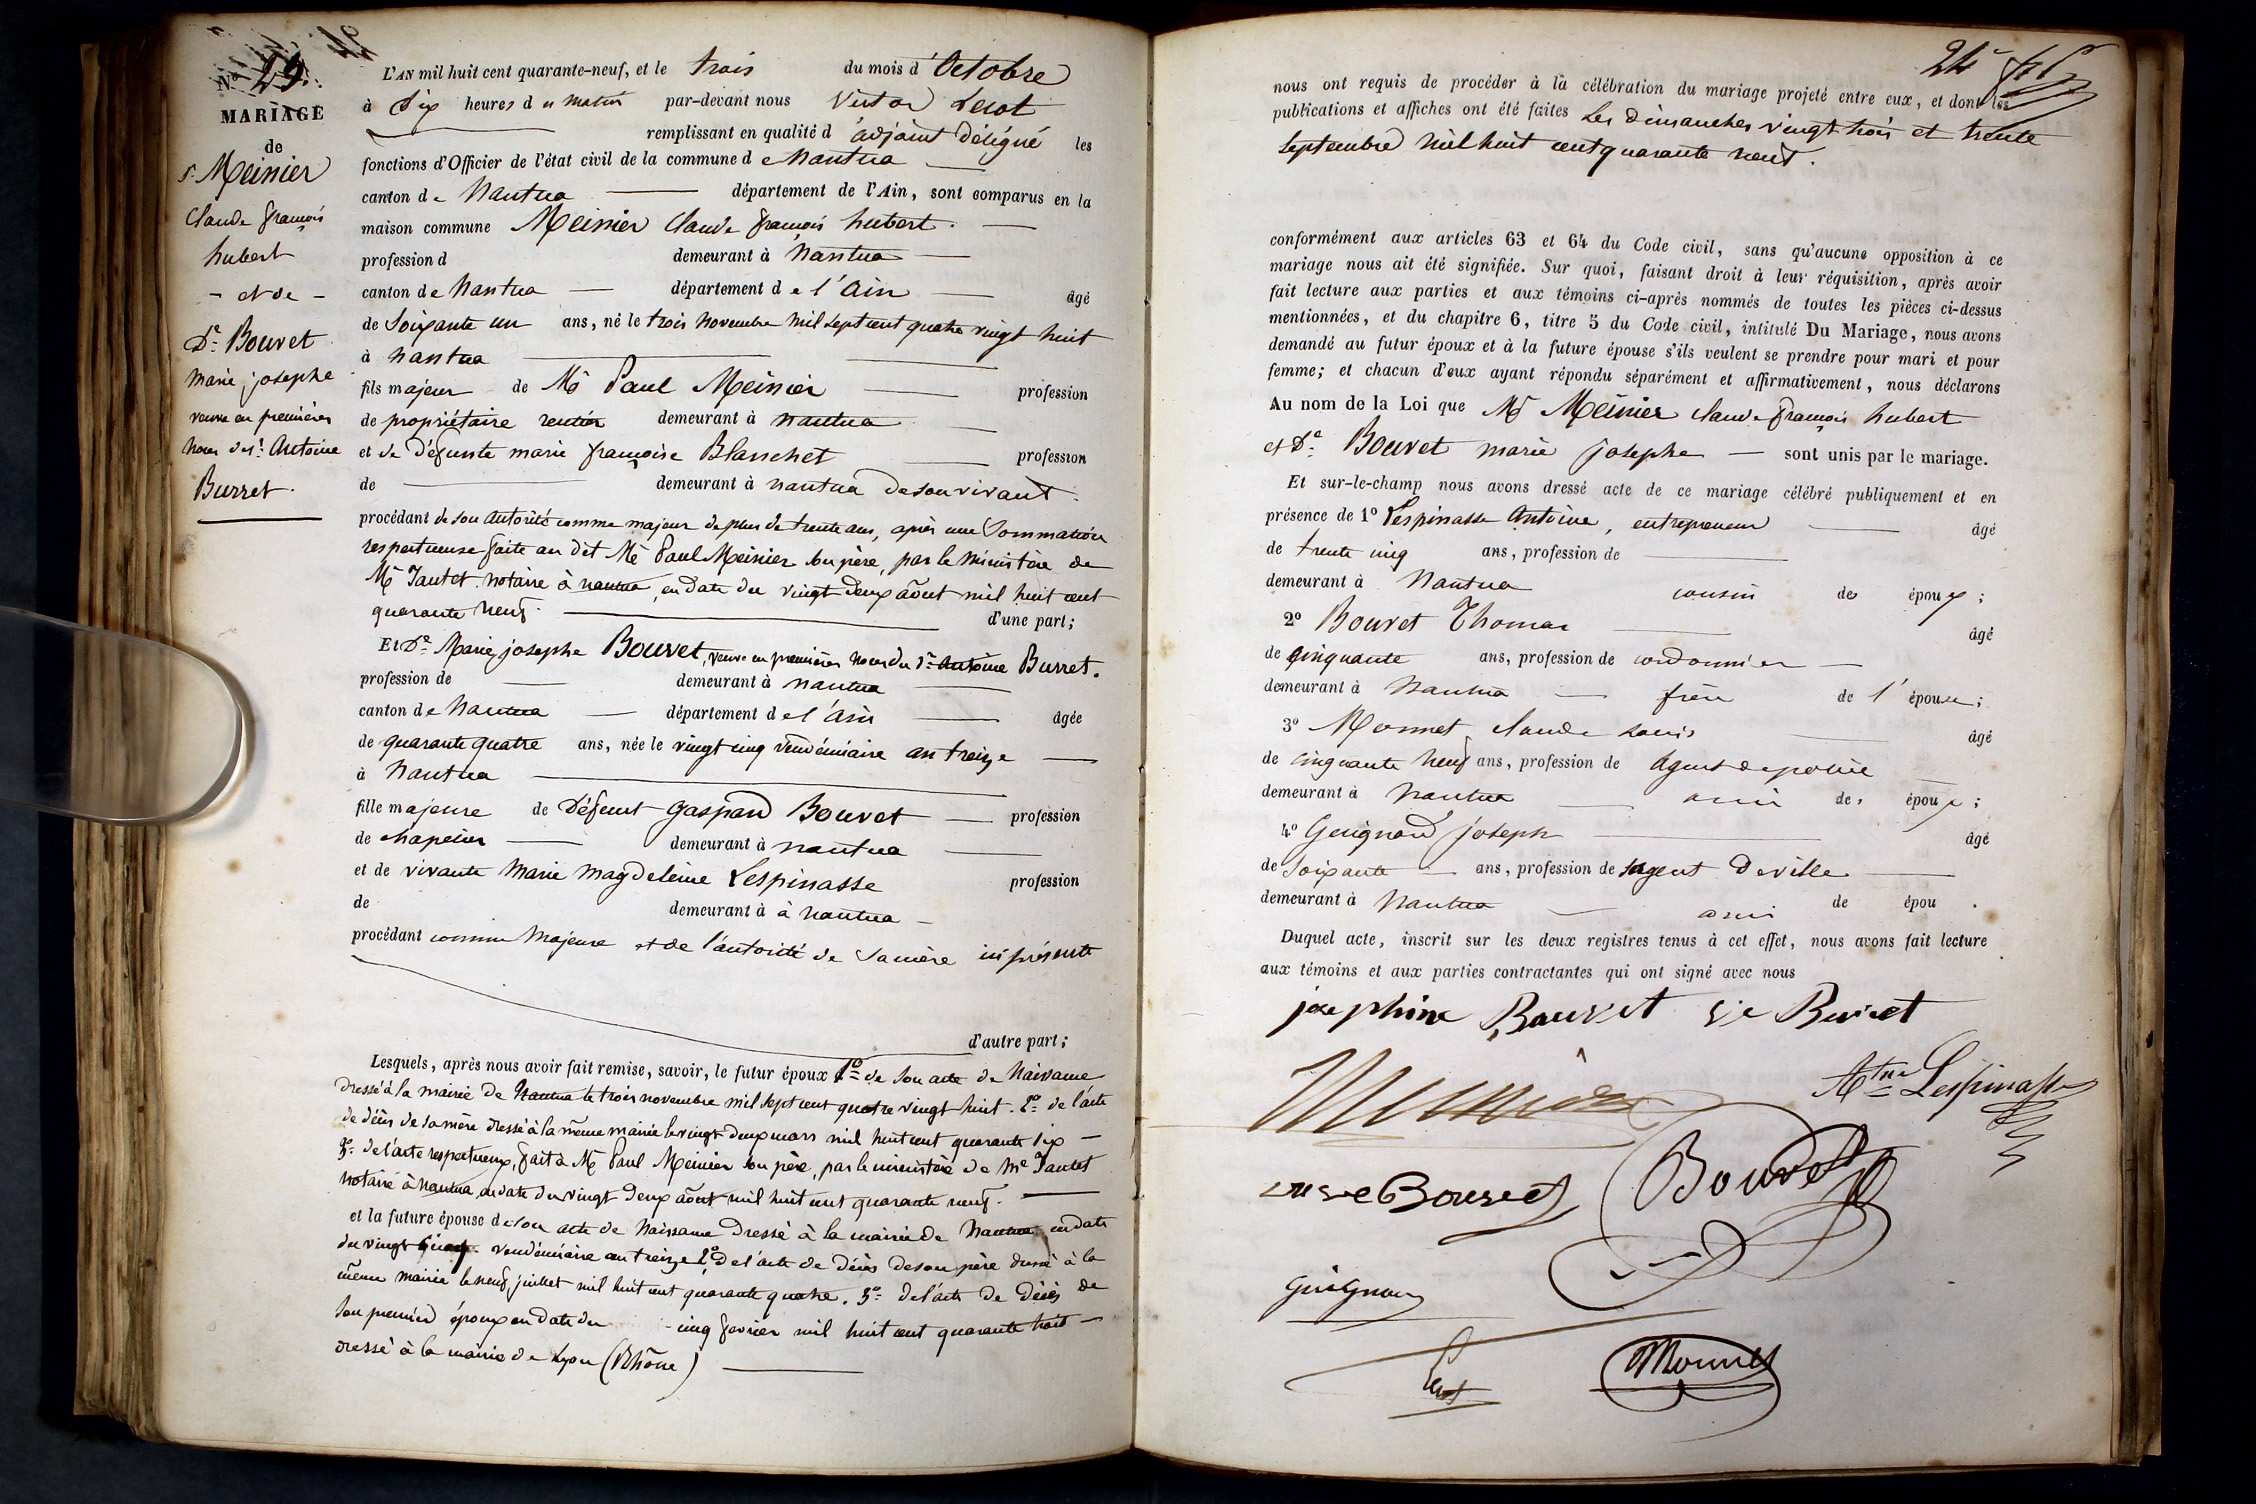 N° 29.
MARIAGE
de
Sr Meinier
Claude françois
hubert
- et de -
De Bouvet
marie josephe
veuve en premières
noces de sr Antoine
Burret.
L'AN mil huit cent quarante-neuf, et le trois du mois d'Octobre
à Six heures du matin par-devant nous Victor
remplissant en qualité d'adjoint délégué les
fonctions d'Officier de l'état civil de la commune de Nantua
canton de Nantua département de l'Ain, sont comparus en la
maison commune Meinier Claude françois hubert.
profession d demeurant à Nantua
canton de Nantua département de l'Ain âgé
de Soixante un ans, né le trois novembre mil sept cent quatre vingt huit
à Nantua
fils majeur de Mr Paul Meinier profession
de propriétaire rentier demeurant à Nantua
et de défunte marie françoise Blanchet profession
de demeurant à nantua de son vivant.
procédant de son autorité comme majeur de plus de trente ans, après une Sommation
respectueuse faite au dit Mr Paul Meinier son père, par le ministère de
Me Jantet notaire à nantua, en date du vingt deux août mil huit cent
quarante neuf. d'une part;
Et De Marie josephe Bouvet, veuve en premières noces du sr Antoine Burret.
profession de demeurant à nantua
canton de Nantua département de l'Ain âgée
de quarante quatre ans, née le vingt cinq vendémiaire an treize
à Nantua
fille majeure de défunt gaspard Bouvet profession
de chapelier demeurant à nantua
et de vivante Marie Magdeleine Lespinasse profession
de demeurant à à nantua
procédant comme Majeure et de l'autorité de sa mère ici présente
d'autre part;
Lesquels, après nous avoir fait remise, savoir, le futur époux 1° de son acte de Naissance
dressé à la mairie de Nantua le trois novembre mil sept cent quatre vingt huit. 2° de l'acte
de décès de sa mère dressé à la même mairie le vingt deux mars mil huit cent quarante six
3° de l'acte respectueux, fait à Mr Paul Meinier son père, par le ministère de Me Jantet
notaire à Nantua, en date du vingt deux août mil huit cent quarante neuf.
et la future épouse de son acte de Naissance dressé à la mairie de Nantua en date
du vingt cinq vendémiaire an treize 2° de l'acte de décès de son père dressé à la
même mairie le neuf juillet mil huit cent quarante quatre. 3° de l'acte de décès de
son premier époux en date du cinq fevrier mil huit cent quarante trois
dressé à la mairie de Lyon (Rhône)
24
nous ont requis de procéder à la célébration du mariage projeté entre eux, et dont les
publications et affiches ont été faites Les dimanches vingt trois et trente
Septembre mil huit cent quarante neuf.
conformément aux articles 63 et 64 du Code civil, sans qu'aucune opposition à ce
mariage nous ait été signifiée. Sur quoi, faisant droit à leur réquisition, après avoir
fait lecture aux parties et aux témoins ci-après nommés de toutes les pièces ci-dessus
mentionnées, et du chapitre 6, titre 5 du Code civil, intitulé Du Mariage, nous avons
demandé au futur époux et à la future épouse s'ils veulent se prendre pour mari et pour
femme; et chacun d'eux ayant répondu séparément et affirmativement, nous déclarons
Au nom de la Loi que Mr Meinier Claude François hubert
et De Bouvet marie josephe sont unis par le mariage.
Et sur-le-champ nous avons dressé acte de ce mariage célébré publiquement et en
présence de 1° Lespinasse Antoine, entrepreneur âgé
de trente cinq ans, profession de
demeurant à Nantua cousin des époux;
2° Bouvet Thomas âgé
de Cinquante ans, profession de cordonnier
demeurant à Nantua frère de l'épouse;
3° Monnet Claude Louis âgé
de cinquante neuf ans, profession de Agent de police
demeurant à Nantua ami des époux;
4° Guignard joseph âgé
de Soixante ans, profession de sergent de ville
demeurant à Nantua ami de épou .
Duquel acte, inscrit sur les deux registres tenus à cet effet, nous avons fait lecture
aux témoins et aux parties contractantes qui ont signé avec nous
josephine Bouvet ve Burret
Meinier
Atne Lespinasse
veuve Bouvet
Bouvet
Guignard
Monnet